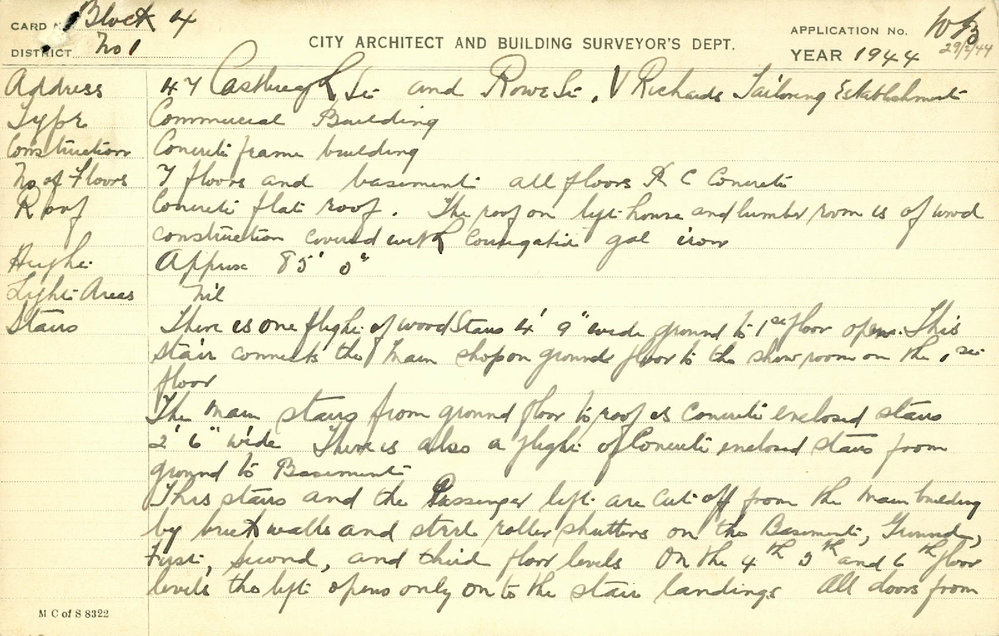 CARD N Block 4
DISTRICT No 1
CITY ARCHITECT AND BUILDING SURVEYOR'S DEPT.
APPLICATION No.
29/2/44
YEAR 1944
Address 47 Castlereagh St and Rowe St, V Richards Tailoring Establishment
Type Commercial Building
Construction Concrete frame building
No of Floors 7 floors and basement all floors R C Concrete
Roof Concrete flat roof. The roof on lift house and lumber room is of wood
construction covered with Corrugated gal iron
Height Approx 85' 0"
Light Areas Nil
Stairs There is one flight of wood stairs 4' 9" wide ground to 1st floor open. This
stair connects the main shop on ground floor to the show room on the 1st
floor
The main stairs from ground floor to roof is concrete enclosed stairs
2' 6" wide There is also a flight of Concrete enclosed stairs from
ground to Basement
This stairs and the Passenger lift are cut off from the main building
by brick walls and steel roller shutters on the Basement, Ground,
First, Second, and third floor levels On the 4th 5th and 6th floor
levels the lift opens only on to the stair landings All doors from
M C of S 8322